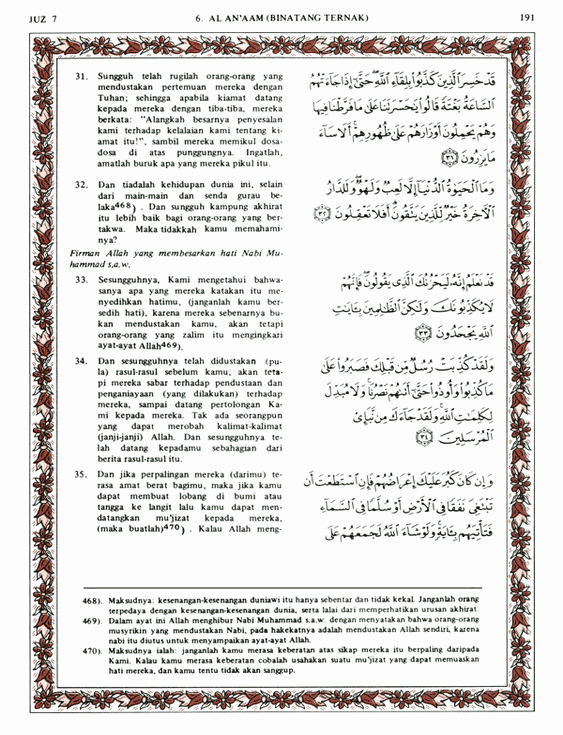 JUZ 7
6. AL AN'AAM (BINATANG TERNAK)
191
31. Sungguh telah rugilah orang-orang yang
mendustakan pertemuan mereka dengan
Tuhan; sehingga apabila kiamat datang
kepada mereka dengan tiba-tiba, mereka
berkata: "Alangkah besarnya penyesalan
kami terhadap kelalaian kami tentang ki-
amat itu!", sambil mereka memikul dosa-
dosa di atas punggungnya. Ingatlah,
amatlah buruk apa yang mereka pikul itu.
قَدْ خَسِرَ ٱلَّذِينَ كَذَّبُوا۟ بِلِقَآءِ ٱللَّهِ حَتَّىٰٓ إِذَا جَآءَتْهُمُ
ٱلسَّاعَةُ بَغْتَةً قَالُوا۟ يَٰحَسْرَتَنَا عَلَىٰ مَا فَرَّطْنَا فِيهَا
وَهُمْ يَحْمِلُونَ أَوْزَارَهُمْ عَلَىٰ ظُهُورِهِمْ أَلَا سَآءَ
مَا يَزِرُونَ ٣١
32. Dan tiadalah kehidupan dunia ini, selain
dari main-main dan senda gurau be-
laka468) . Dan sungguh kampung akhirat
itu lebih baik bagi orang-orang yang ber-
takwa. Maka tidakkah kamu memahami-
nya?
وَمَا ٱلْحَيَوٰةُ ٱلدُّنْيَآ إِلَّا لَعِبٌ وَلَهْوٌ وَلَلدَّارُ
ٱلْءَاخِرَةُ خَيْرٌ لِّلَّذِينَ يَتَّقُونَ أَفَلَا تَعْقِلُونَ ٣٢
Firman Allah yang membesarkan hati Nabi Mu-
hammad s.a.w.
33. Sesungguhnya, Kami mengetahui bahwa-
sanya apa yang mereka katakan itu me-
nyedihkan hatimu, (janganlah kamu ber-
sedih hati), karena mereka sebenarnya bu-
kan mendustakan kamu, akan tetapi
orang-orang yang zalim itu mengingkari
ayat-ayat Allah469).
قَدْ نَعْلَمُ إِنَّهُۥ لَيَحْزُنُكَ ٱلَّذِى يَقُولُونَ فَإِنَّهُمْ
لَا يُكَذِّبُونَكَ وَلَٰكِنَّ ٱلظَّٰلِمِينَ بِـَٔايَٰتِ
ٱللَّهِ يَجْحَدُونَ ٣٣
34. Dan sesungguhnya telah didustakan (pu-
la) rasul-rasul sebelum kamu, akan teta-
pi mereka sabar terhadap pendustaan dan
penganiayaan (yang dilakukan) terhadap
mereka, sampai datang pertolongan Ka-
mi kepada mereka. Tak ada seorangpun
yang dapat merobah kalimat-kalimat
(janji-janji) Allah. Dan sesungguhnya te-
lah datang kepadamu sebahagian dari
berita rasul-rasul itu.
وَلَقَدْ كُذِّبَتْ رُسُلٌ مِّن قَبْلِكَ فَصَبَرُوا۟ عَلَىٰ
مَا كُذِّبُوا۟ وَأُوذُوا۟ حَتَّىٰٓ أَتَىٰهُمْ نَصْرُنَا وَلَا مُبَدِّلَ
لِكَلِمَٰتِ ٱللَّهِ وَلَقَدْ جَآءَكَ مِن نَّبَإِى۟
ٱلْمُرْسَلِينَ ٣٤
35. Dan jika perpalingan mereka (darimu) te-
rasa amat berat bagimu, maka jika kamu
dapat membuat lobang di bumi atau
tangga ke langit lalu kamu dapat men-
datangkan mu'jizat kepada mereka,
(maka buatlah)470) . Kalau Allah meng-
وَإِن كَانَ كَبُرَ عَلَيْكَ إِعْرَاضُهُمْ فَإِنِ ٱسْتَطَعْتَ أَن
تَبْتَغِىَ نَفَقًا فِى ٱلْأَرْضِ أَوْ سُلَّمًا فِى ٱلسَّمَآءِ
فَتَأْتِيَهُم بِـَٔايَةٍ وَلَوْ شَآءَ ٱللَّهُ لَجَمَعَهُمْ عَلَى
468). Maksudnya: kesenangan-kesenangan duniawi itu hanya sebentar dan tidak kekal. Janganlah orang
terpedaya dengan kesenangan-kesenangan dunia, serta lalai dari memperhatikan urusan akhirat.
469). Dalam ayat ini Allah menghibur Nabi Muhammad s.a.w. dengan menyatakan bahwa orang-orang
musyrikin yang mendustakan Nabi, pada hakekatnya adalah mendustakan Allah sendiri, karena
nabi itu diutus untuk menyampaikan ayat-ayat Allah.
470). Maksudnya ialah: janganlah kamu merasa keberatan atas sikap mereka itu berpaling daripada
Kami. Kalau kamu merasa keberatan cobalah usahakan suatu mu'jizat yang dapat memuaskan
hati mereka, dan kamu tentu tidak akan sanggup.